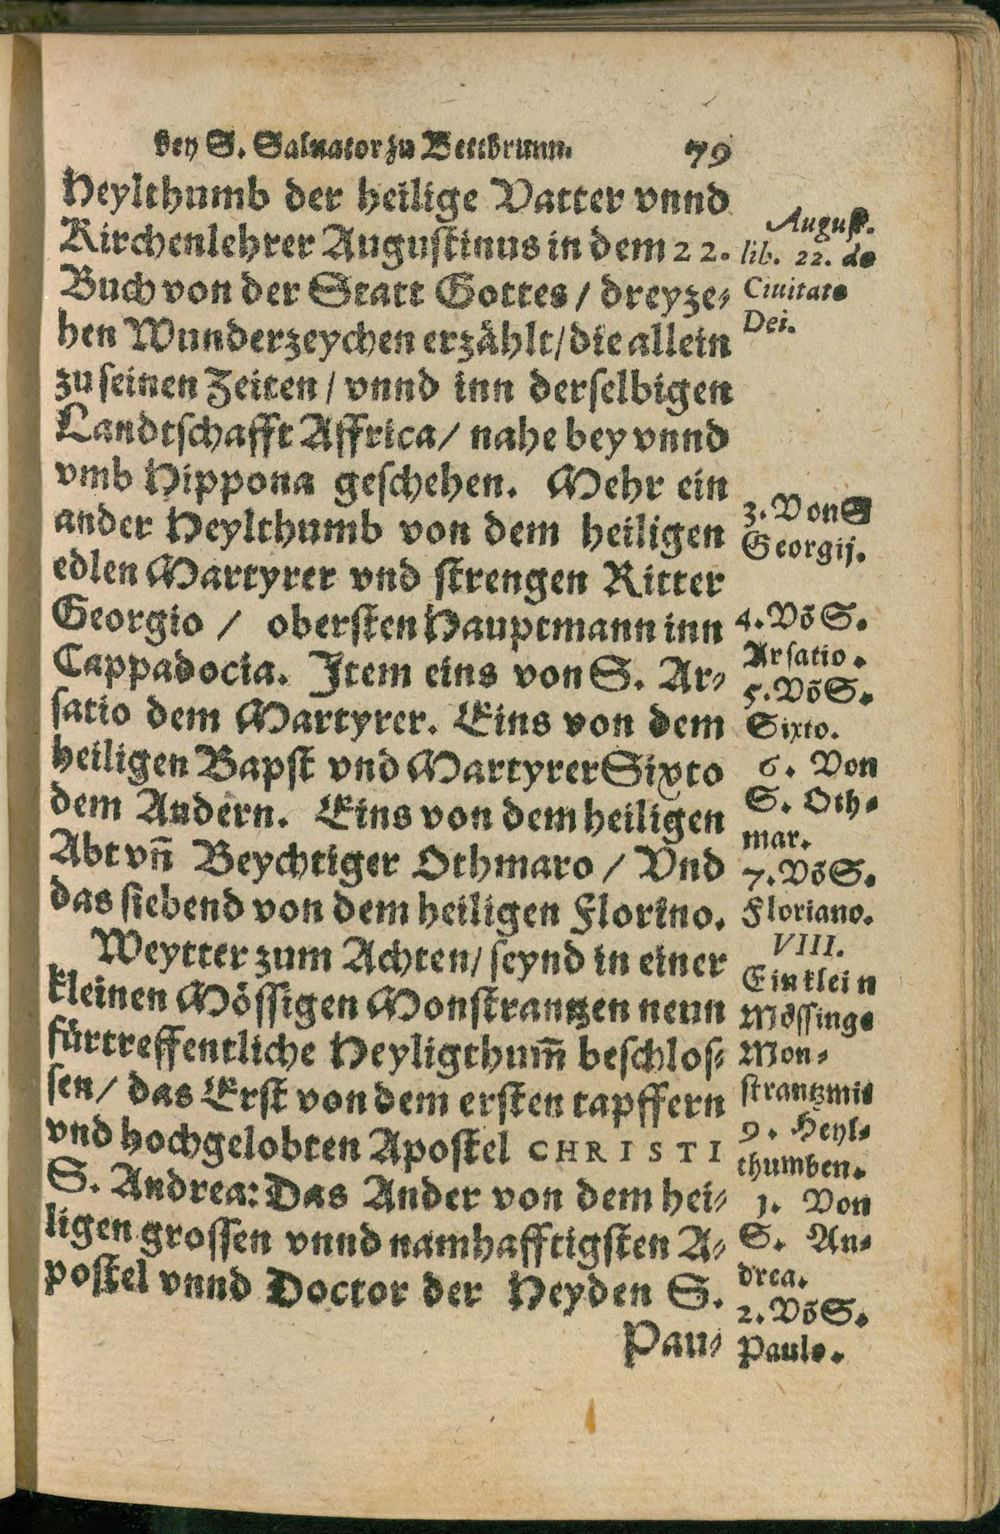 bey S. Saluator zu Bettbrunn. 79
Heylthumb der heilige Vatter vnnd
Kirchenlehrer Augustinus in dem 22.
Buch von der Statt Gottes / dreyze⸗
hen Wunderzeychen erzählt / die allein
zu seinen Zeiten / vnnd inn derselbigen
Landtschafft Affrica / nahe bey vnnd
vmb Hippona geschehen. Mehr ein
ander Heylthumb von dem heiligen
edlen Martyrer vnd strengen Ritter
Georgio / obersten Hauptmann inn
Cappadocia. Item eins von S. Ar⸗
satio dem Martyrer. Eins von dem
heiligen Bapst vnd Martyrer Sixto
dem Andern. Eins von dem heiligen
Abt vñ Beychtiger Othmaro / Vnd
das siebend von dem heiligen Florino.
Weytter zum Achten / seynd in einer
kleinen Mössigen Monstrantzen neun
fürtreffentliche Heyligthum̃ beschlos⸗
sen / das Erst von dem ersten tapffern
vnd hochgelobten Apostel CHRISTI
S. Andrea: Das Ander von dem hei⸗
ligen grossen vnnd namhafftigsten A⸗
postel vnnd Doctor der Heyden S.
Pau⸗
August.
lib. 22. de
Ciuitate
Dei.
3. Von S
Georgij.
4. Võ S.
Arsatio.
5. Võ S.
Sixto.
6. Von
S. Oth⸗
mar.
7. Võ S.
Floriano.
VIII.
Ein klein
Mössinge
Mon⸗
strantz mit
9. Heyl⸗
thumben.
1. Von
S. An⸗
drea.
2. Võ S.
Paulo.